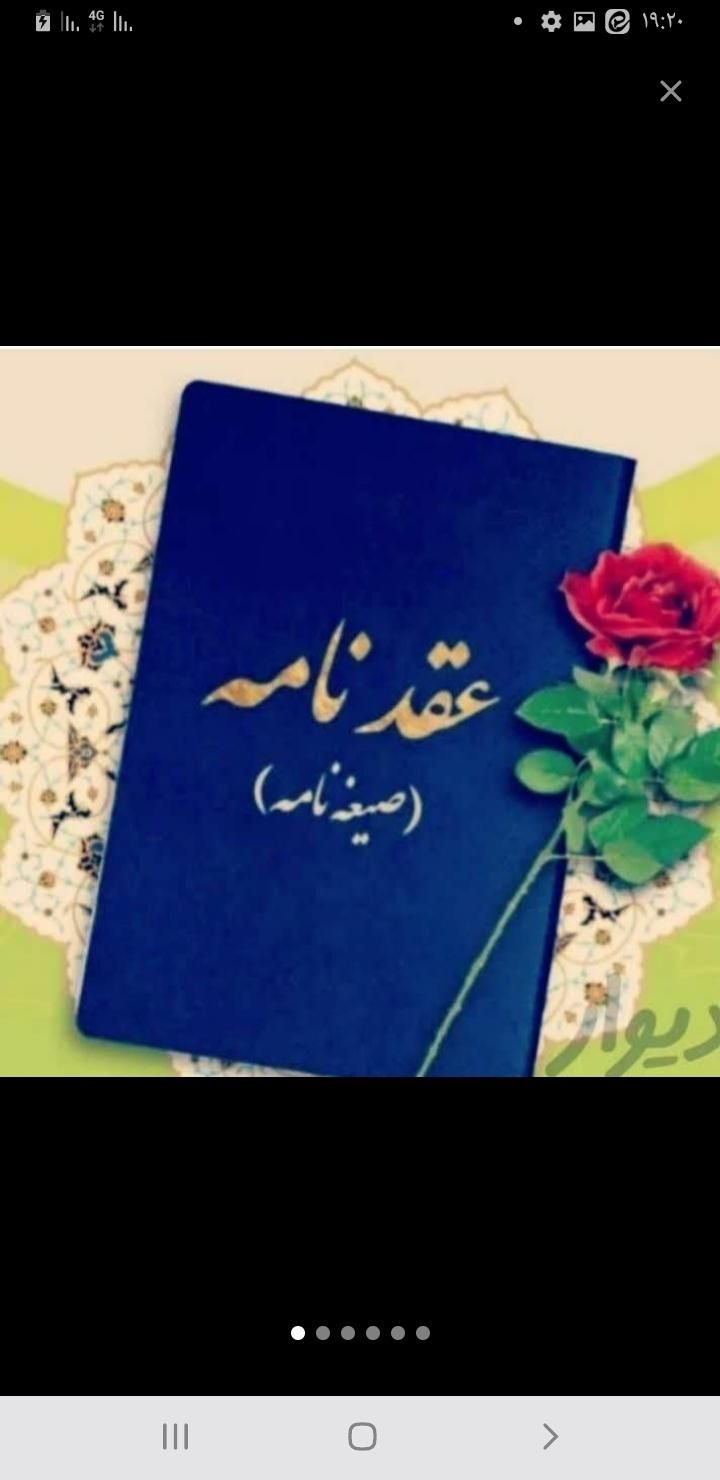 4G
۱۹:۲۰
عقد نامه
(صیغه نامه)
دیوار